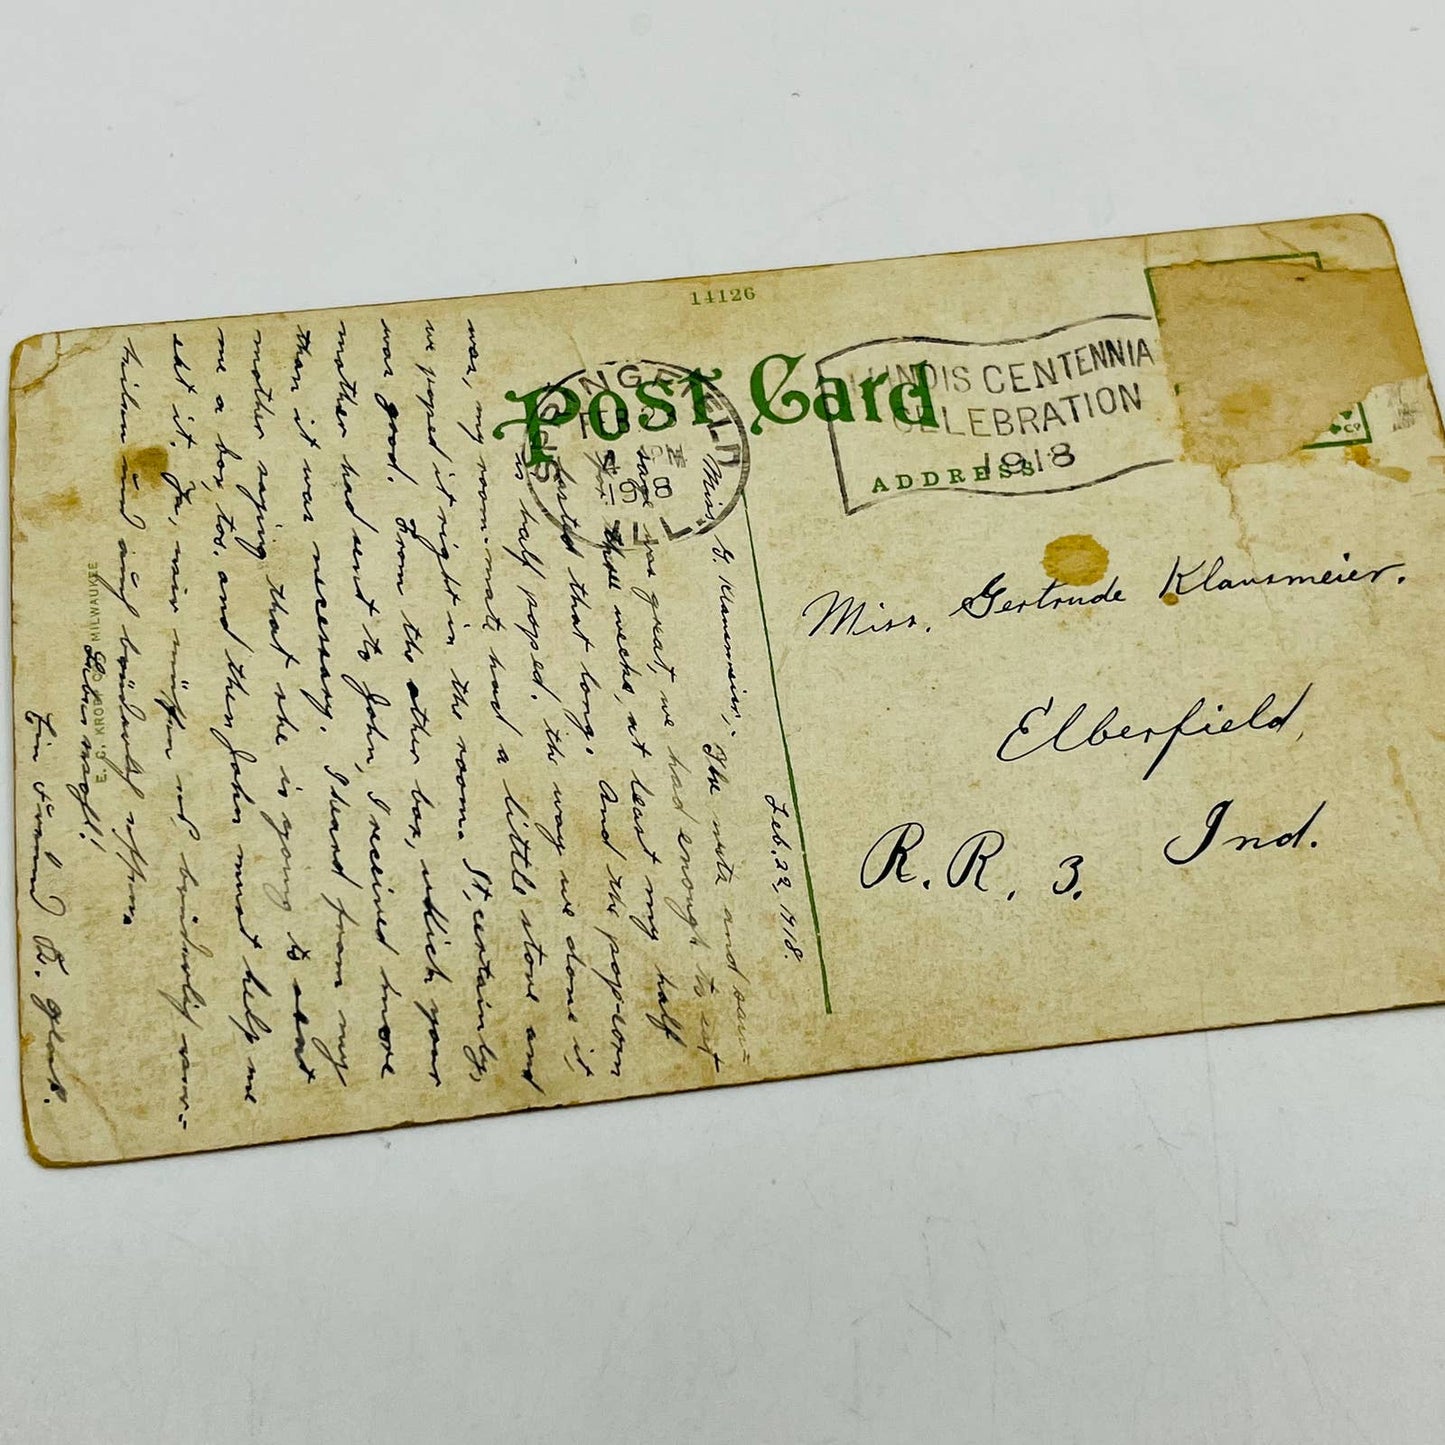 14126
Post Card
SPRINGFIELD
FEB
PM
1918
ILL.
ILLINOIS CENTENNIA
CELEBRATION
1918
ADDRESS
Miss. Gertrude Klausmeier.
Elberfield,
R. R. 3. Ind.
Feb. 22, 1918.
Miss. G. Klausmeier; The nuts and sau-
sage was great, we had enough to eat
for three weeks, at least my half
lasted that long. And the pop-corn
is half popped. the way we done it
was, my room-mate had a little stove and
we poped it right in the room. It certainly
was good. From the other box, which your
mother had send to John, I received more
than it was necessary. I heard from my
mother saying that she is going to send
me a box, too. and then John must help me
eat it. Ja, wir müssen uns brüderlich
teilen und auch
Lebewohl!
Ein Freund
E. C. KROPP CO. MILWAUKEE